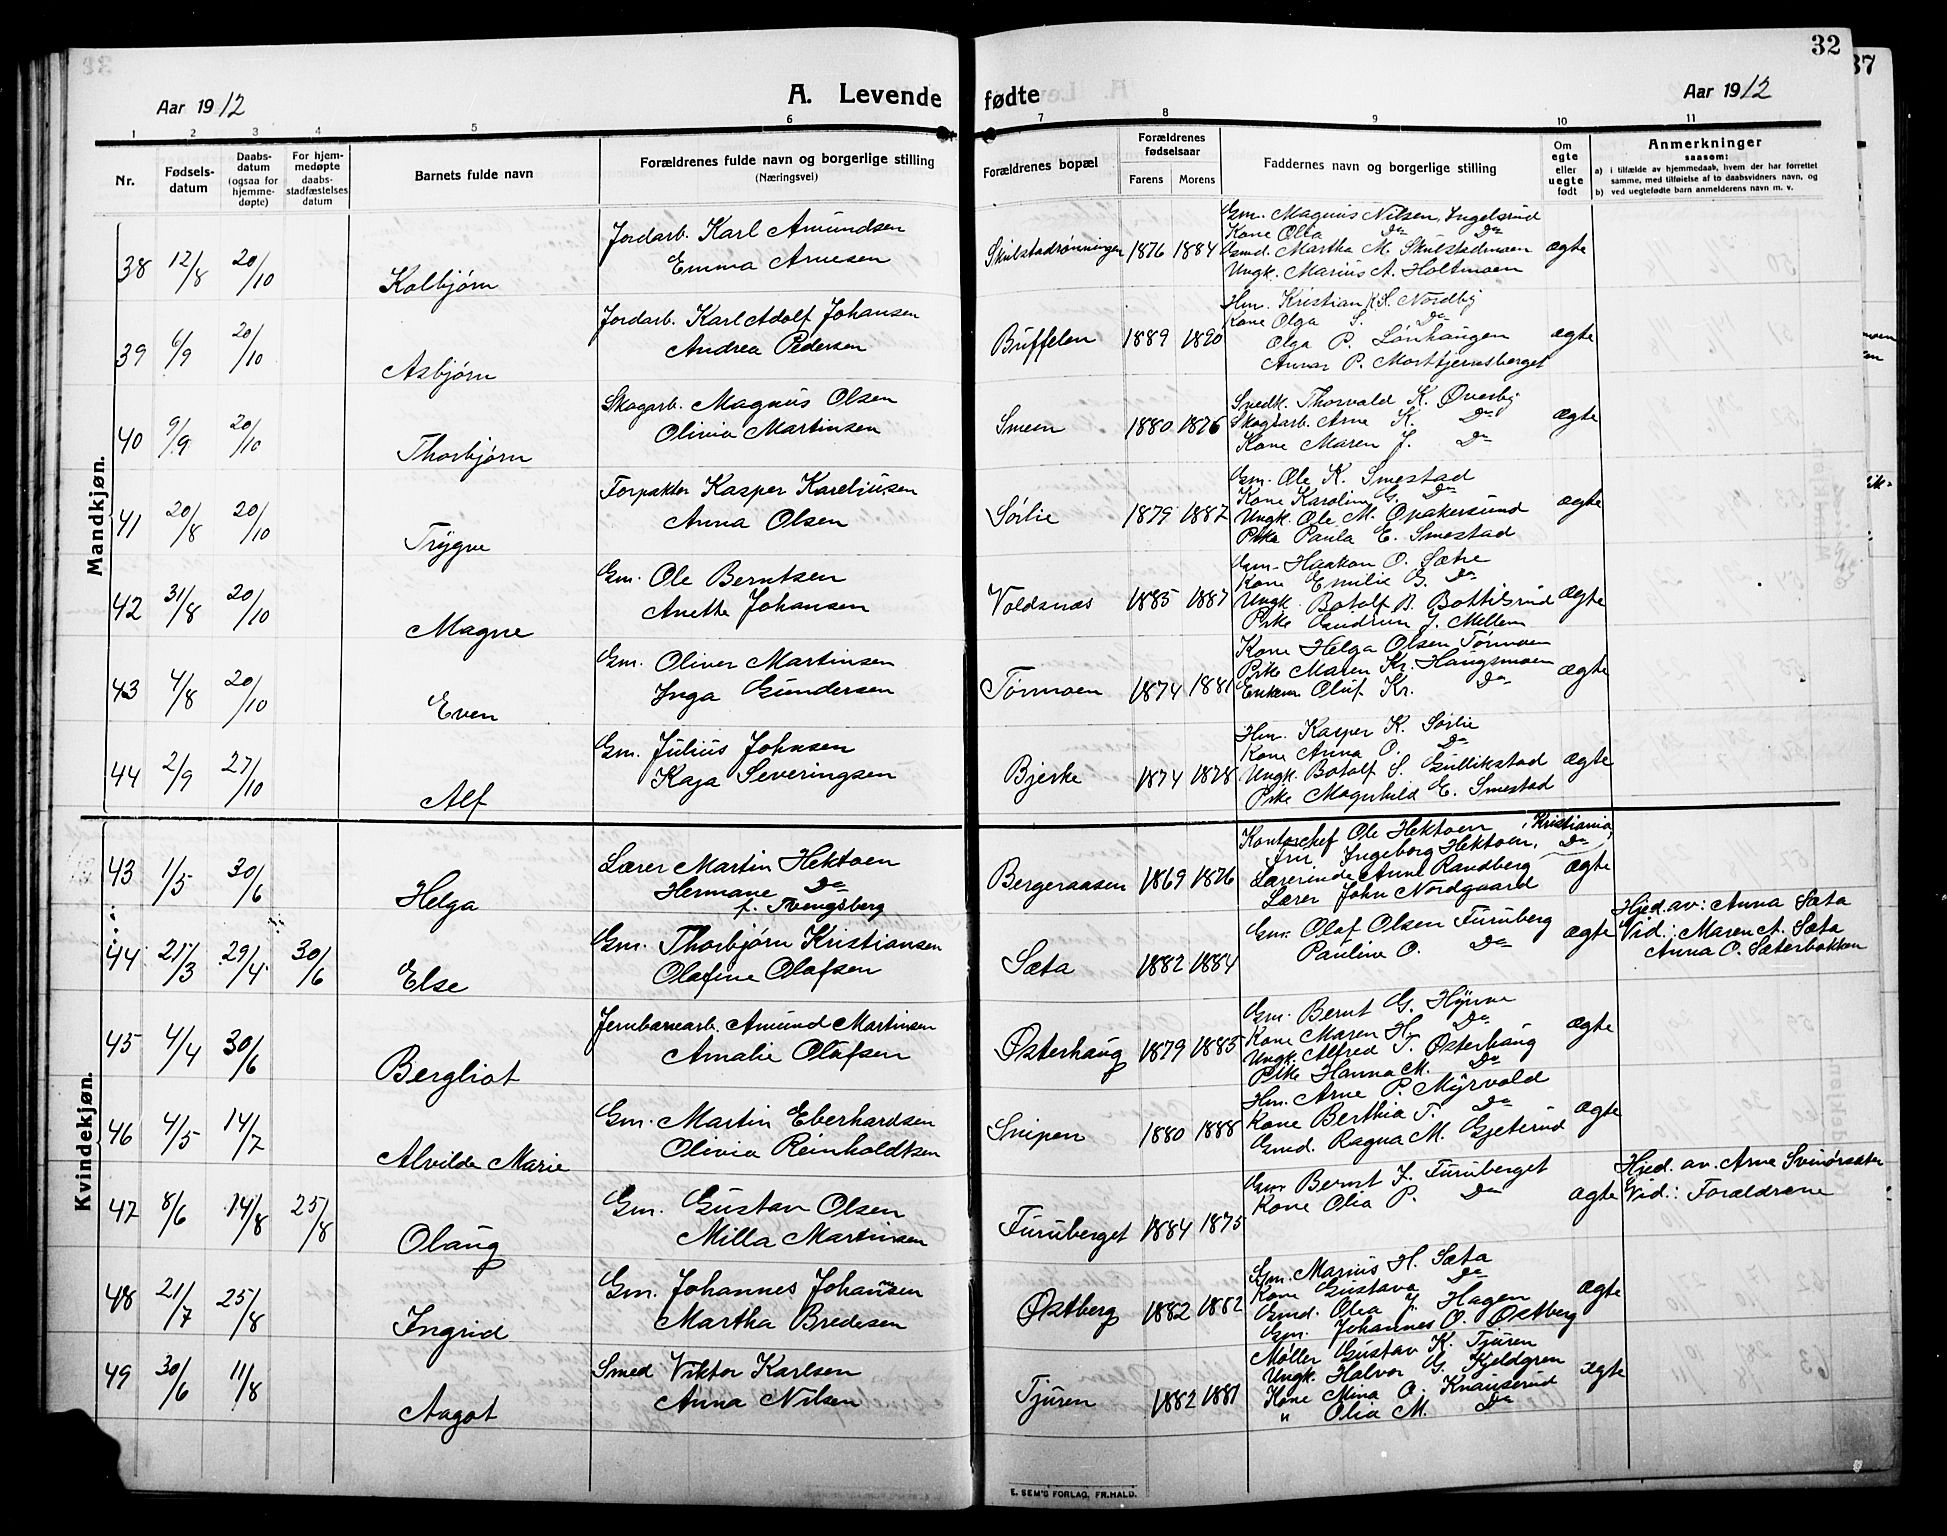 32
37
Aar 1912
A. Levende fødte
Aar 1912
1 2 3 4 5 6 7 8 9 10 11
Nr.
Fødsels-
datum
Daabs-
datum
(ogsaa for
hjemme-
døpte)
For hjem-
medøpte
daabs-
stadfæstelses
datum
Barnets fulde navn
Forældrenes fulde navn og borgerlige stilling
(Næringsvei)
Forældrenes bopæl
Forældrenes
fødselsaar
Farens Morens
Faddernes navn og borgerlige stilling
Om
egte
eller
uegte
født
Anmerkninger
saasom:
a) i tilfælde av hjemmedaab, hvem der har forrettet
samme, med tilføielse af to daabsvidners navn, og
b) ved uegtefødte barn anmelderens navn m. v.
Mandkjøn.
38 12/8 20/10 Kolbjørn
Jordarb. Karl Amundsen
Emma Arnesen
Skulstadrønningen 1876 1884
Gm. Magnus Nilsen, Ingelsrud
Kone Olta Do Do
Gmd. Martha M. Skulstadmoen
Ungk. Marius A. Holtmoen
ægte
39 6/9 20/10 Asbjørn
Jordarb. Karl Adolf Johansen
Andrea Pedersen
Buffelen 1889 1890
Hm. Kristian K. S. Nordby
Kone Olga S. Do
Olga P. Lønhaugen
Annar P. Morttjernsberget
ægte
40 9/9 20/10 Thorbjørn
Skogarb. Magnus Olsen
Olivia Martinsen
Smeen 1880 1876
Snedk. Thorvald K. Øverby
Skogsarb. Arne K. Do
Kone Maren J. Do
ægte
41 20/8 20/10 Trygve
Forpakter Kasper Kareliusen
Anna Olsen
Sørlie 1879 1887
Gm. Ole K. Smestad
Kone Karoline G. Do
Ungk. Ole M. Opakersund
Pike Paula E. Smestad
ægte
42 31/8 20/10 Magne
Gm. Ole Berntsen
Anette Johansen
Voldsnæs 1885 1887
Gm. Haakon O. Sætre
Kone Emilie G. Do
Ungk. Botolf B. Bottilsrud
Pike Gudrun J. Mellem
ægte
43 4/8 20/10 Even
Gm. Oliver Martinsen
Inga Gundersen
Tørmoen 1874 1881
Kone Helga Olsen Tørmoen
Pike Maren Kr. Haugsmoen
Enkem Oluf Kr. Do
ægte
44 2/9 27/10 Alf
Gm. Julius Johnsen
Kaja Severingsen
Bjerke 1874 1878
Hm. Kasper K. Sørlie
Kone Anna O. Do
Ungk. Botolf S. Gullikstad
Pike Magnhild E. Smestad
ægte
Kvindekjøn.
43 1/5 30/6 Helga
Lærer Martin Hektoen
Hermane Do
f. Tvengsberg
Bergeraasen 1869 1876
Kontorchef Ole Hektoen, Kristiania,
Fru Ingeborg Hektoen, Do
Lærerinde Anne Randberg
Lærer John Nordgaard
ægte
44 21/3 29/4 30/6 Else
Gm. Thorbjørn Kristiansen
Olafine Olafsen
Sæta 1882 1884
Gm. Olaf Olsen Furuberg
Pauline O. Do
ægte
Hjed. av: Anna Sæta
Vid.: Maren A. Sæta
Anna O. Sæterbakken
45 4/4 30/6 Bergliot
Jernbanearb. Amund Martinsen
Amalie Olafsen
Østerhaug 1879 1885
Gm. Bernt G. Hynne
Kone Maren H. Do
Ungk. Alfred T. Østerhaug
Pike Hanna M. Do
ægte
46 4/5 14/7 Alvilde Marie
Gm. Martin Eberhardsen
Olivia Reinholdtsen
Snipen 1880 1888
Hm. Arne P. Myrvold
Kone Berthia T. Do
Gmd. Ragna M. Gjetsrud
ægte
47 8/6 14/8 25/8 Olaug
Gm. Gustav Olsen
Milla Martinsen
Furuberget 1884 1875
Gm Bernt J. Furuberget
Kone Olia P. Do
ægte
Hjed. av. Arne Svinørsæter
Vid.: Forældrene
48 21/7 25/8 Ingrid
Gm. Johannes Johansen
Martha Bredesen
Østberg 1882 1882
Gm. Marius H. Sæta
Kone Gustava Do
Gmd. Olia J. Hagen
Gm. Johannes O. Østberg
ægte
49 30/6 11/8 Aagot
Smed Viktor Karlsen
Anna Nilsen
Tjuren 1882 1881
Møller Gustav K. Tjuren
Ungk. Halvor G. Kjeldgren
Kone Mina O. Knauserud
" Olia M. Do
ægte
E. SEM'S FORLAG, FR.HALD.